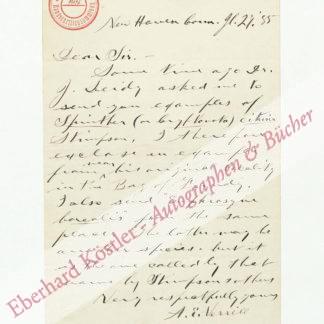 New Haven Conn.
Dear Sir. –
Some time ago Dr.
J. Leidy asked me to
send you examples of
Spinther (or Cryptonota) citrina
Stimpson, I therefore
enclose an example
from near his original locality
in the Bay of Fundy.
I also send
borealis from the same
place. The latter may be
species, but it
is the one called by that
name by Stimpson & others
Very respectfully yours
A. E. Verrill
Eberhard Köstler - Autographen & Bücher